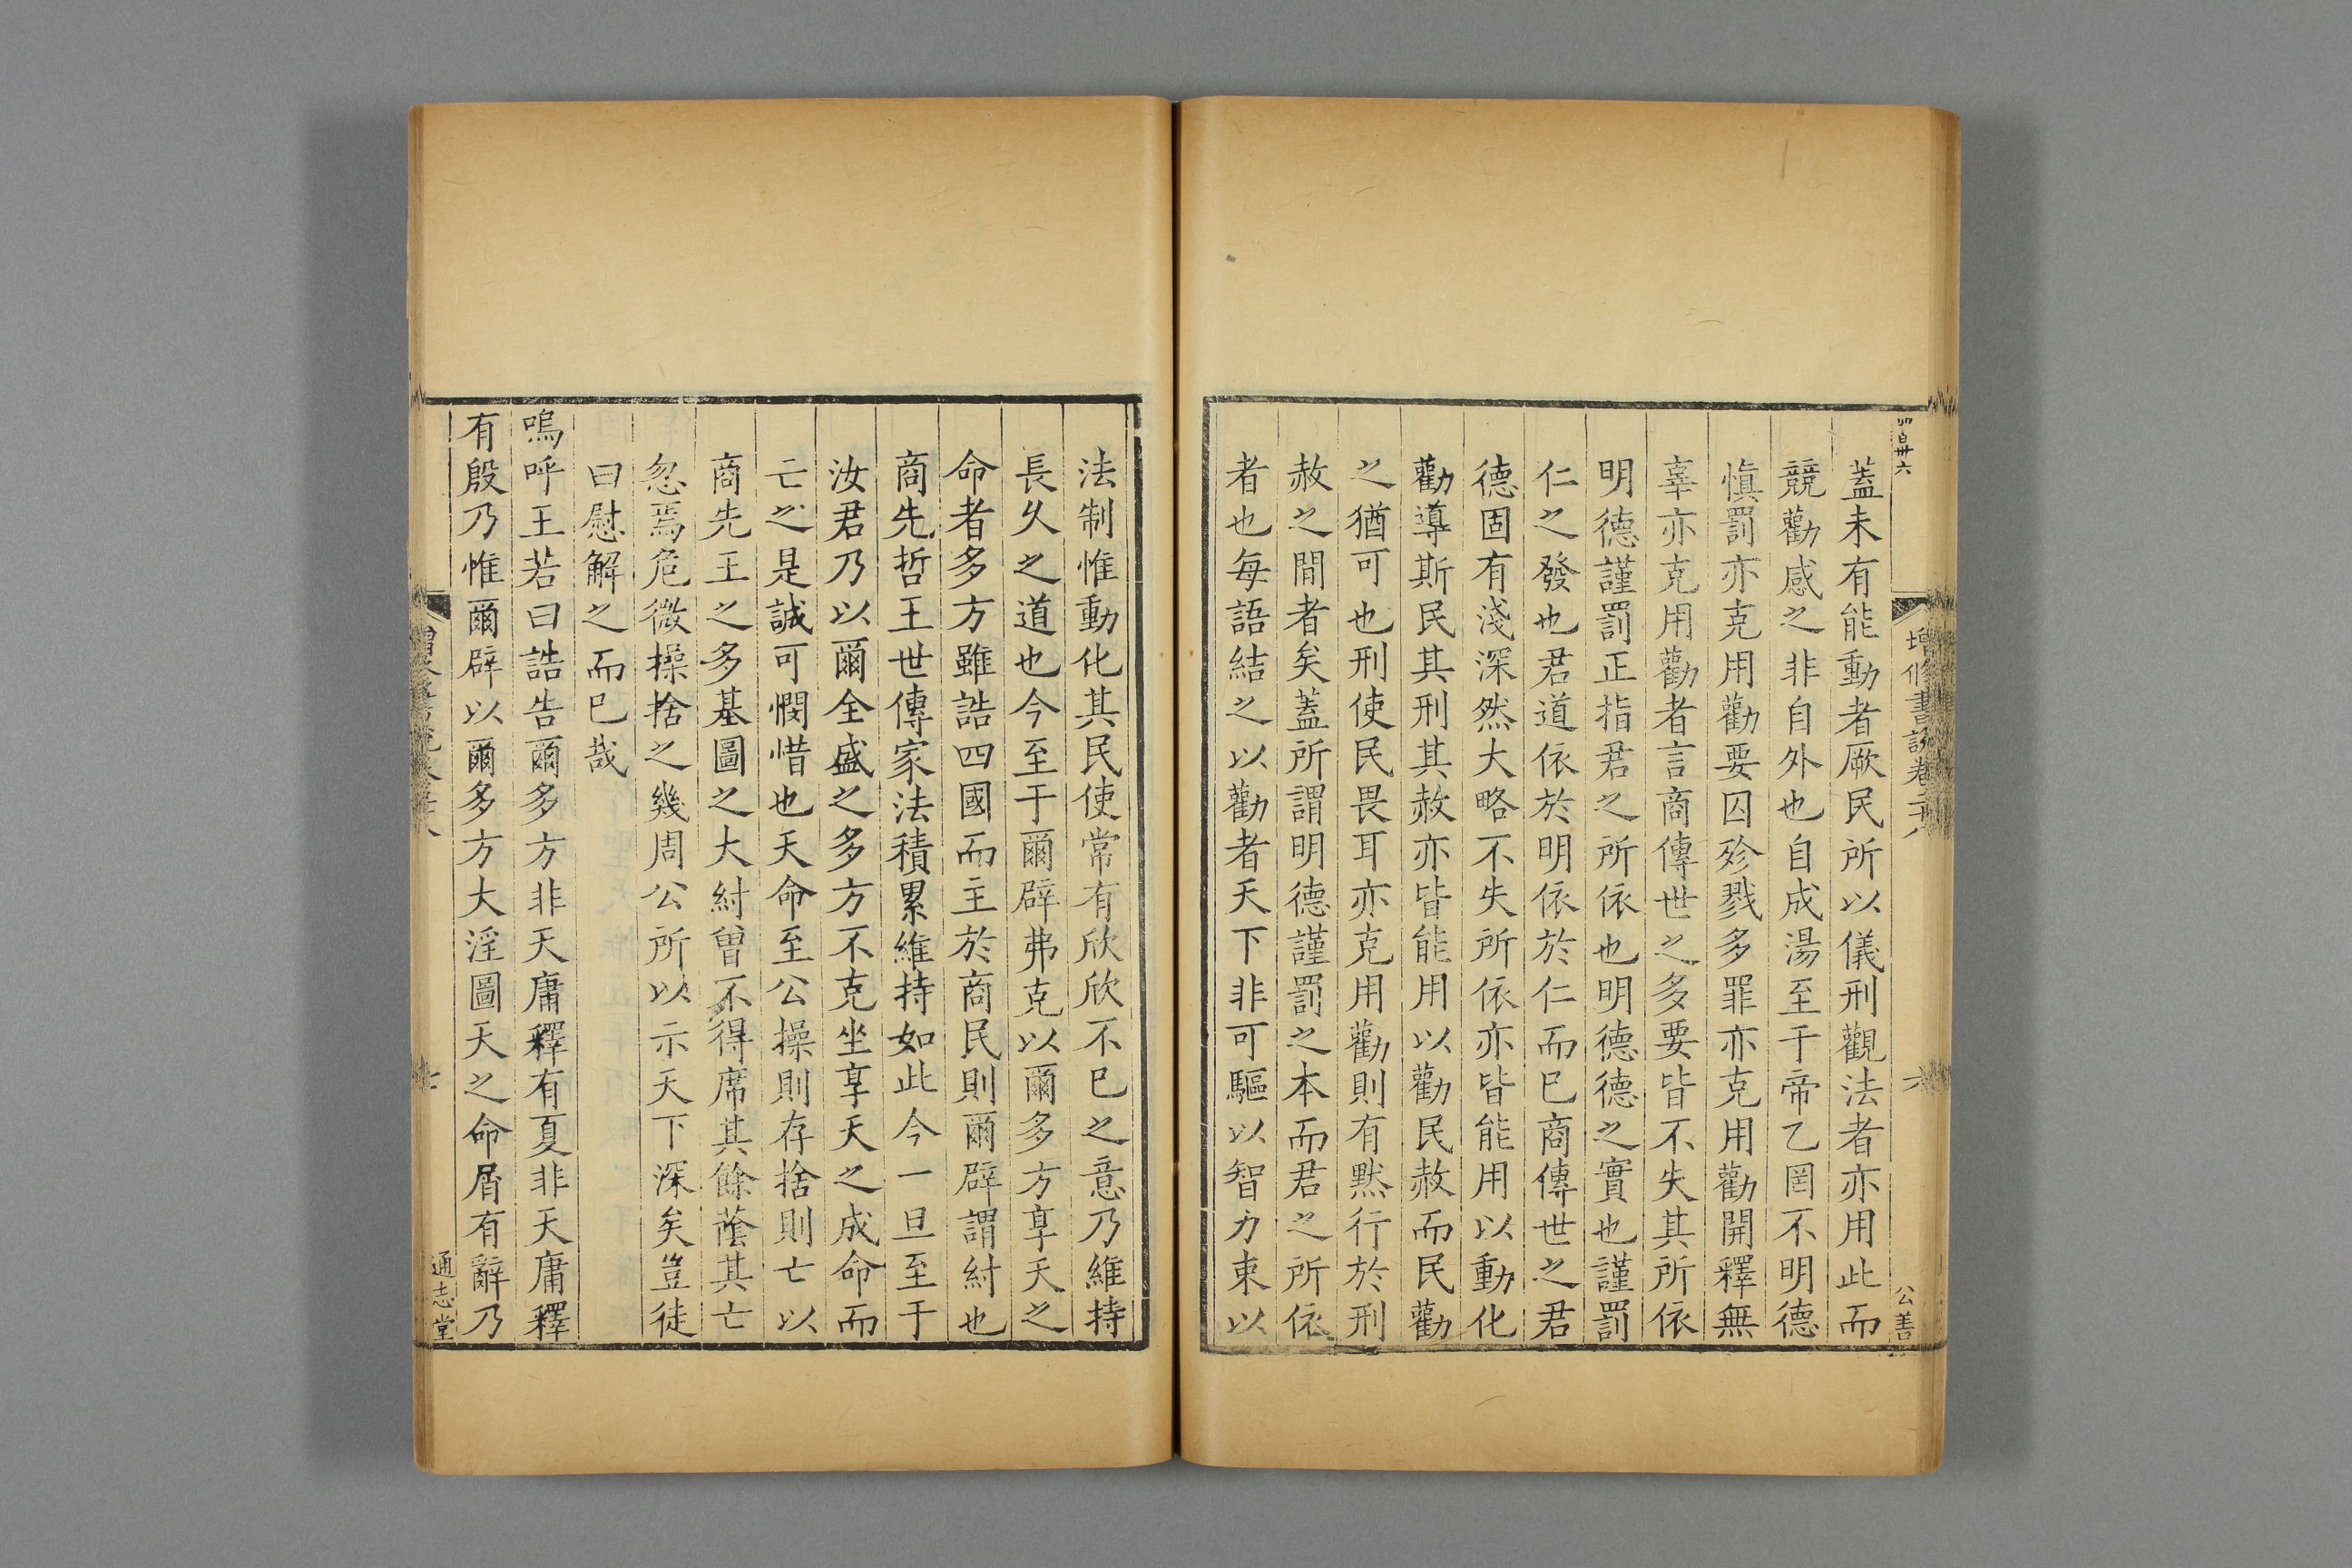 蓋未有能動者厥民所以儀刑觀法者亦用此而
競勸感之非自外也自成湯至于帝乙罔不明德
慎罰亦克用勸要囚殄戮多罪亦克用勸開釋無
辜亦克用勸者言商傳世之多要皆不失其所依
明德謹罰正指君之所依也明德德之實也謹罰
仁之發也君道依於明依於仁而已商傳世之君
德固有淺深然大略不失所依亦皆能用以動化
勸導斯民其刑其赦亦皆能用以勸民赦而民勸
之猶可也刑使民畏耳亦克用勸則有默行於刑
赦之間者矣蓋所謂明德謹罰之本而君之所依
者也每語結之以勸者天下非可驅以智力束以
法制惟動化其民使常有欣欣不已之意乃維持
長久之道也今至于爾辟弗克以爾多方享天之
命者多方雖誥四國而主於商民則爾辟謂紂也
商先哲王世傳家法積累維持如此今一旦至于
汝君乃以爾全盛之多方不克坐享天之成命而
亡之是誠可憫惜也天命至公操則存捨則亡以
商先王之多基圖之大紂曾不得席其餘蔭其亡
忽焉危微操捨之幾周公所以示天下深矣豈徒
曰慰解之而已哉
嗚呼王若曰誥告爾多方非天庸釋有夏非天庸釋
有殷乃惟爾辟以爾多方大淫圖天之命屑有辭乃
增修書說卷二十八
公善
通志堂